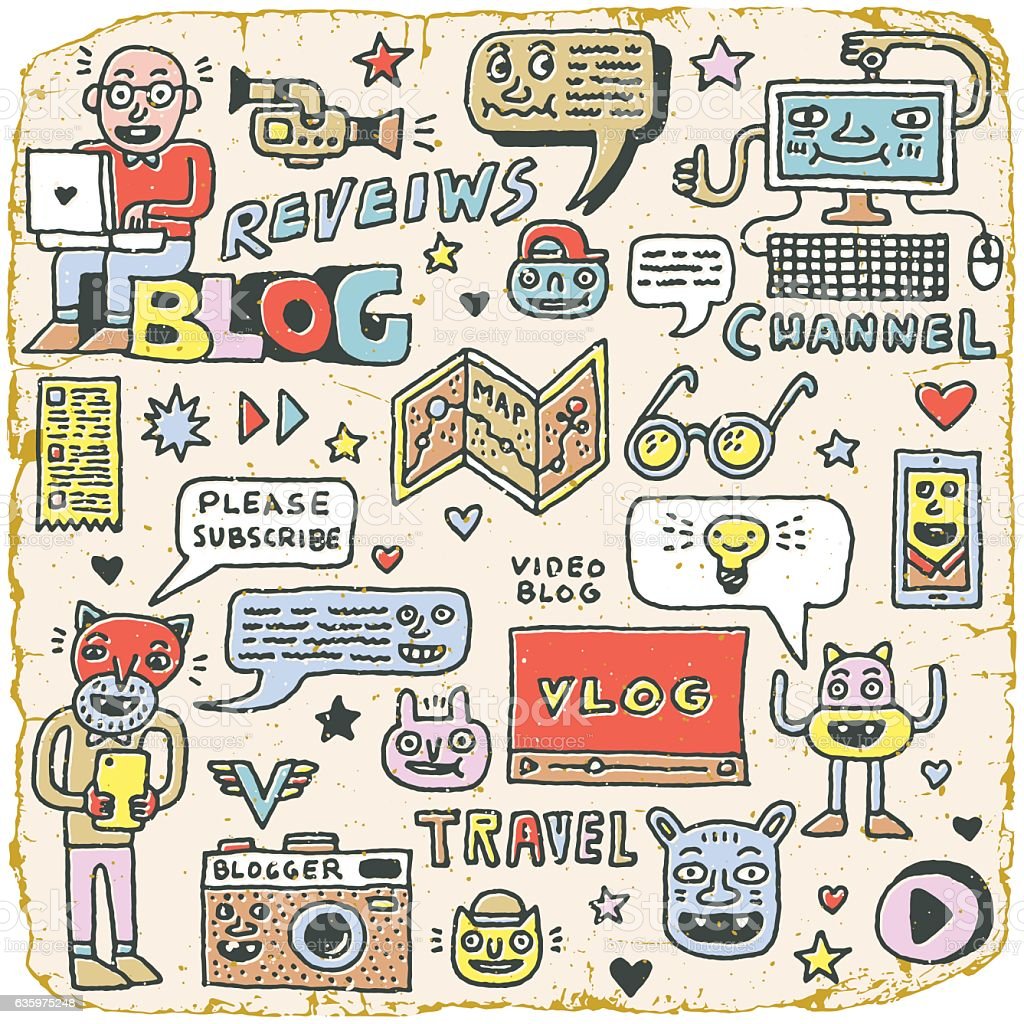 REVEIWS
BLOG
CHANNEL
MAP
PLEASE
SUBSCRIBE
VIDEO
BLOG
VLOG
V
TRAVEL
BLOGGER
iStock
by Getty Images™
635975248